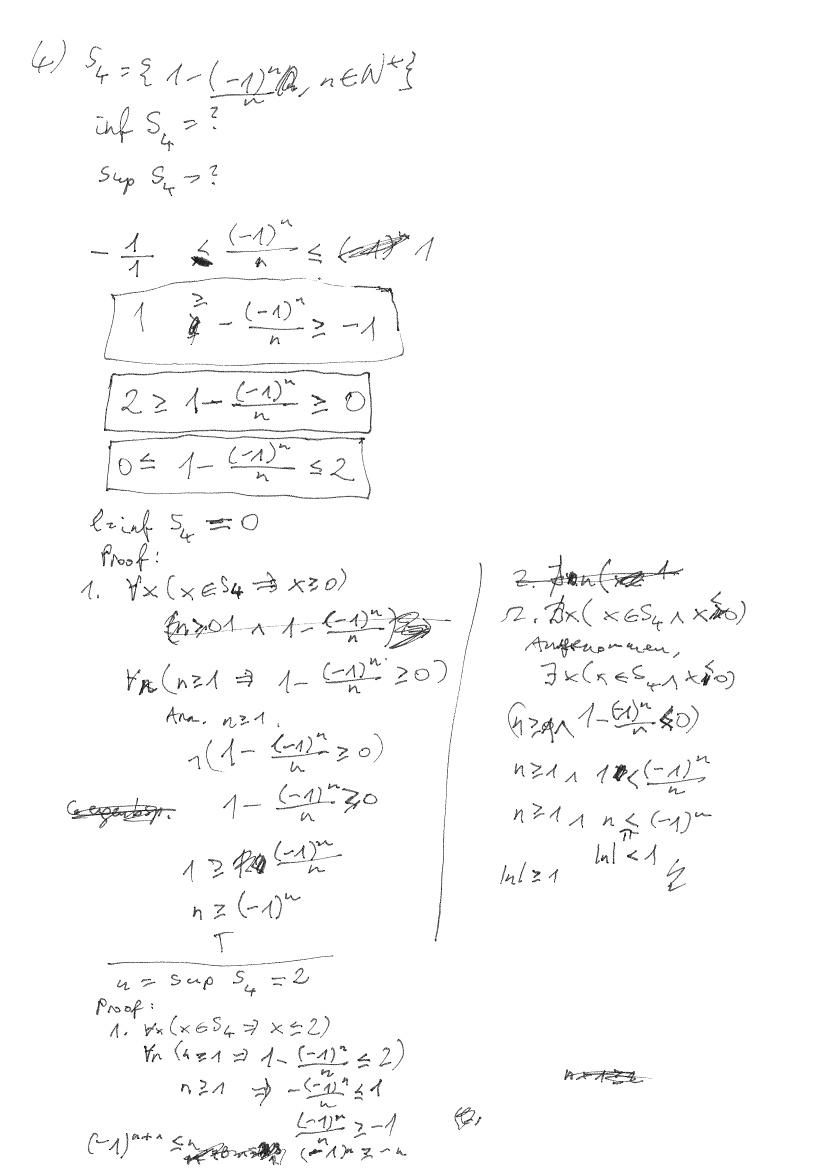 4) S₄ = { 1 - (-1)ⁿ/n, n ∈ N⁺}
inf S₄ = ?
sup S₄ = ?
- 1/1 ≤ (-1)ⁿ/n ≤ 1
1 ≥ - (-1)ⁿ/n ≥ -1
2 ≥ 1 - (-1)ⁿ/n ≥ 0
0 ≤ 1 - (-1)ⁿ/n ≤ 2
l = inf S₄ = 0
Proof:
1. ∀x (x ∈ S₄ ⇒ x ≥ 0)
∀n (n ≥ 1 ⇒ 1 - (-1)ⁿ/n ≥ 0)
Ann. n ≥ 1.
1 - (-1)ⁿ/n ≥ 0)
1 - (-1)ⁿ/n ≥ 0
1 ≥ (-1)ⁿ/n
n ≥ (-1)ⁿ
T
2. ∄x ( x ∈ S₄ ∧ x < 0)
Angenommen,
∃x (x ∈ S₄ ∧ x < 0)
1 - (-1)ⁿ/n < 0)
n ≥ 1 ∧ 1 < (-1)ⁿ/n
n ≥ 1 ∧ n < (-1)ⁿ
|n| < 1
|n| ≥ 1
u = sup S₄ = 2
Proof:
1. ∀x (x ∈ S₄ ⇒ x ≤ 2)
∀n (n ≥ 1 ⇒ 1 - (-1)ⁿ/n ≤ 2)
n ≥ 1 ⇒ - (-1)ⁿ/n ≤ 1
(-1)ⁿ/n ≥ -1
(-1)ⁿ⁺¹ ≤ n (-1)ⁿ ≥ -n